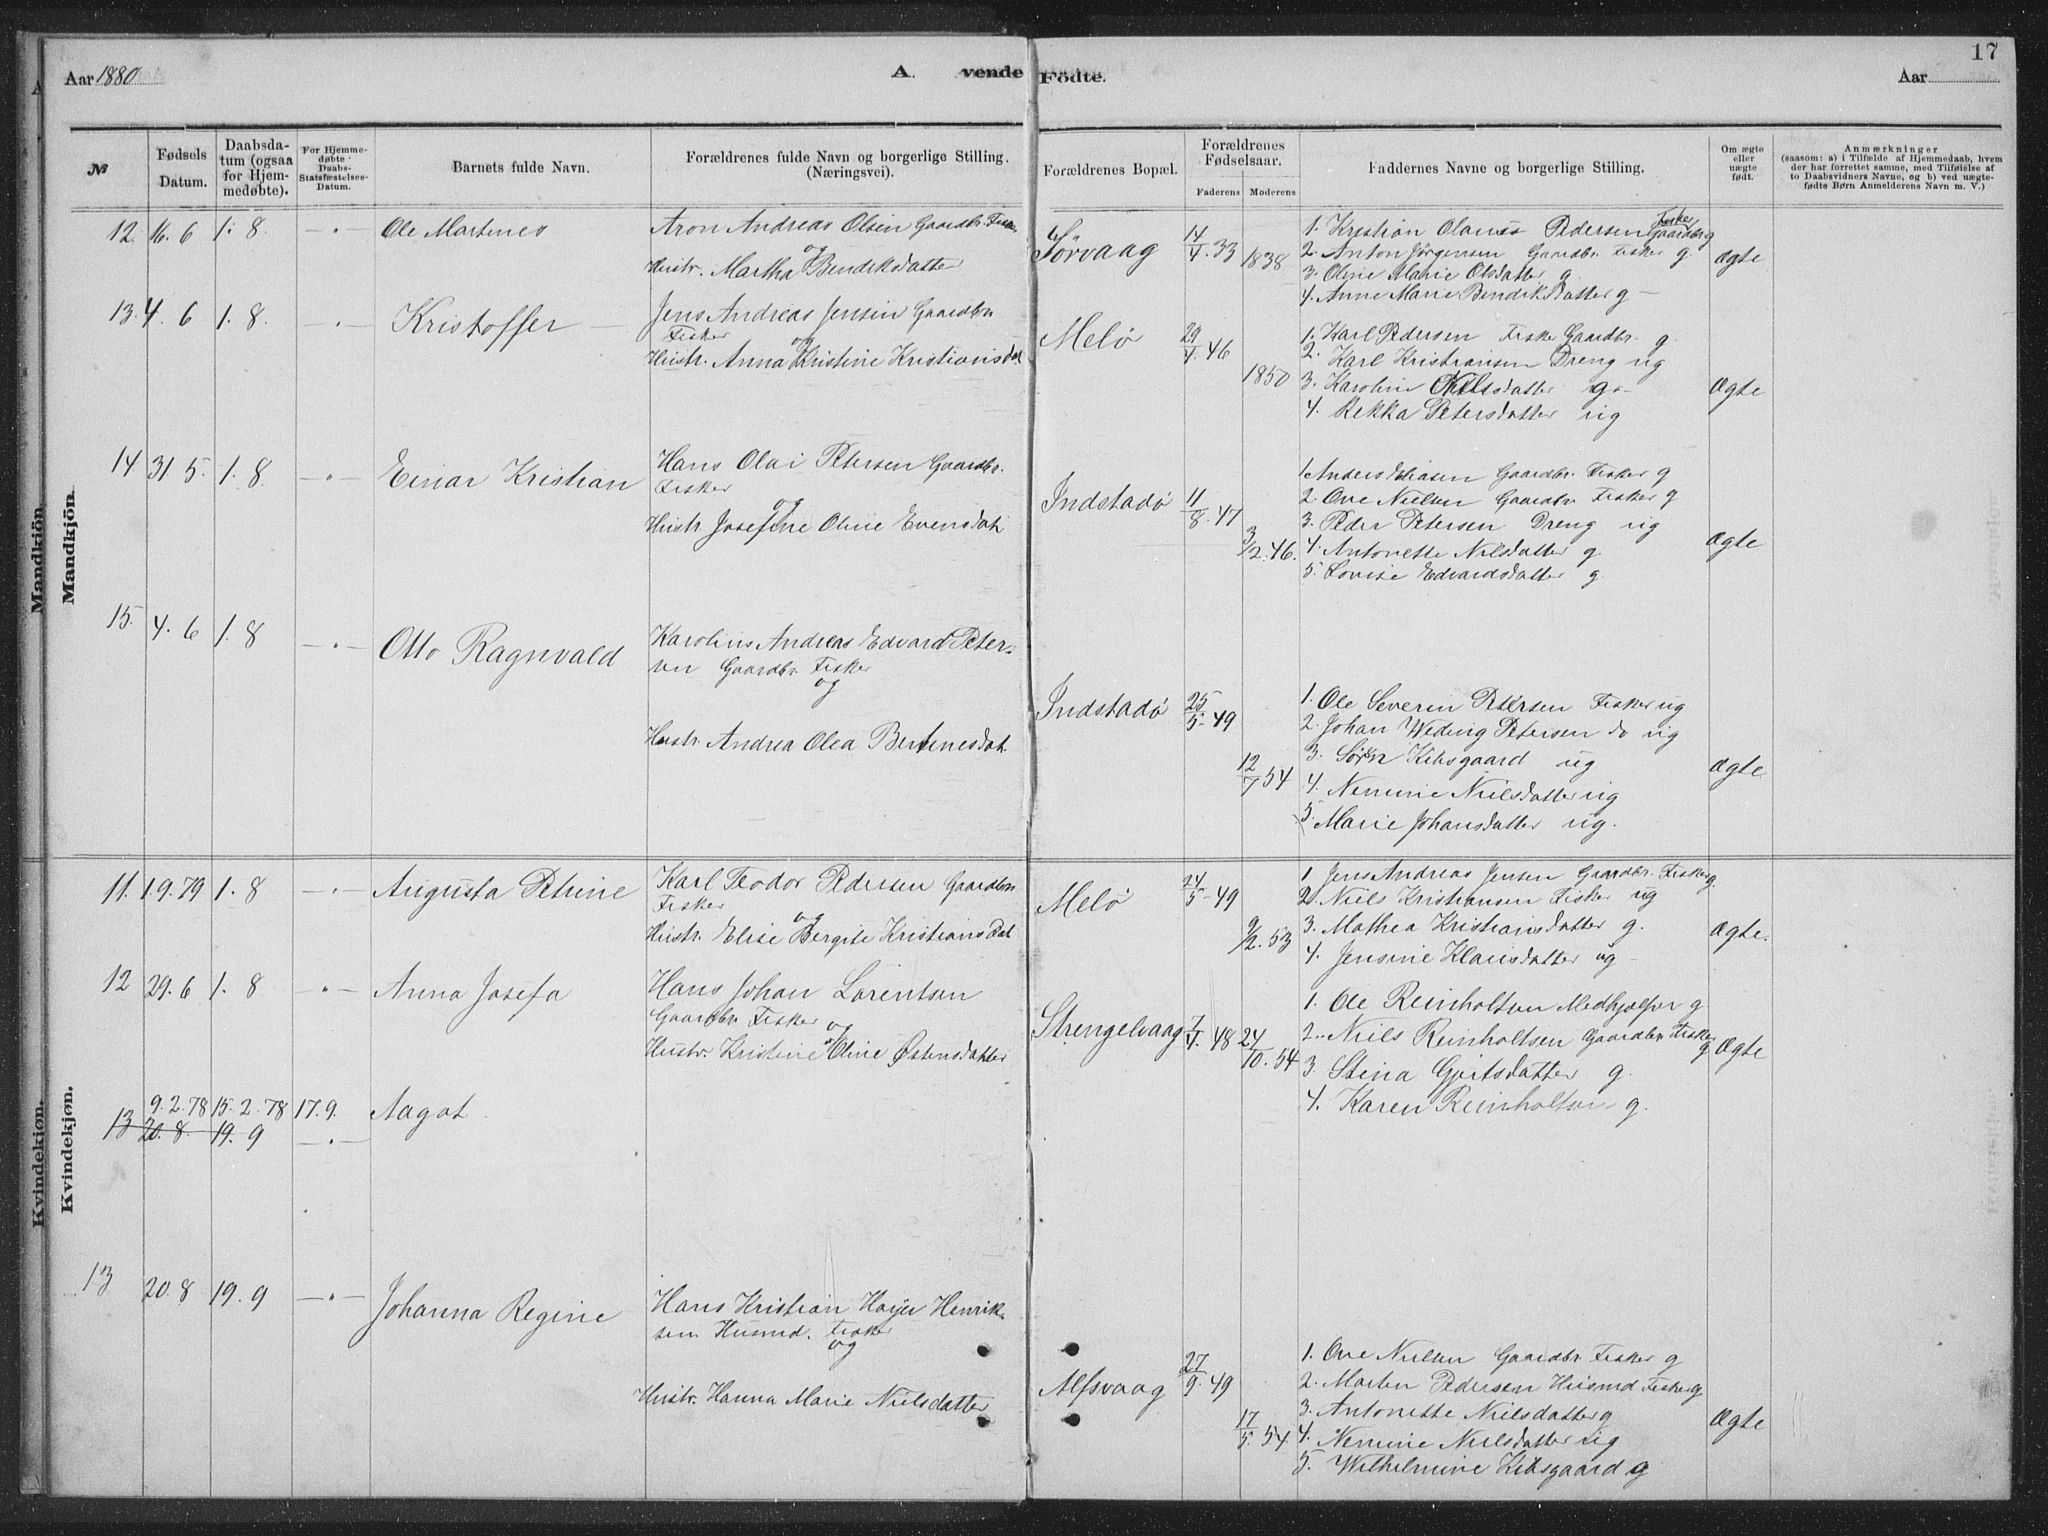 Aar 1880
A. vende
Fødte.
Aar
17
№
Fødsels Datum.
Daabsdatum (ogsaa for Hjemmedøbte).
For Hjemmedøbte Daabs-Statsfæstelses-Datum.
Barnets fulde Navn.
Forældrenes fulde Navn og borgerlige Stilling. (Næringsvei).
Forældrenes Bopæl.
Forældrenes Fødselsaar.
Faderens
Moderens
Faddernes Navne og borgerlige Stilling.
Om ægte eller uægte født.
Anmærkninger
(saasom: a) i Tilfælde af Hjemmedaab, hvem der har forrettet samme, med Tilføielse af to Daabsvidners Navne, og b) ved uægtefødte Børn Anmelderens Navn m. V.)
Mandkjön.
Mandkjön.
12. 16. 6 1. 8. —"— Ole Martines
Aron Andreas Olsen Gaardbr. Fisker
og
Hustr. Martha Bendiksdatter
Sørvaag 14/4. 33 1838
1. Kristian Olanus Pedersen Fisker Gaardbr g
2. Anton Jørgensen Gaardbr. Fisker g.
3. Oline Marie Olsdatter g.
4. Anne Marie Bendiksdatter g —
Ægte
13. 4. 6 1. 8. —"— Kristoffer
Jens Andreas Jensen Gaardbr
Fisker
og
Hustr. Anna Kristine Kristiansdat
Melø 29/4. 46 1850
1. Karl Pedersen Fisker Gaardbr. g.
2. Karl Kristiansen Dreng ug
3. Karoline Nilsdatter g—
4. Rekka Petersdatter ug
Ægte
14 31 5. 1. 8. —"— Einar Kristian
Hans Olai Petersen Gaardbr.
Fisker
og
Hustr Josefine Oline Evensdat
Indstadø 11/8. 47 3/2. 46.
1 Anders Eliasen Gaardbr. Fisker g
2. Ove Nielsen Gaardbr Fisker g
3. Peder Petersen Dreng ug
4. Antonette Nilsdatter g
5. Lovise Edvardsdatter g.
Ægte
15. 4. 6 1. 8 —"— Otto Ragnvald
Karolius Andreas Edvard Peter-
sen Gaardbr. Fisker
og
Hustr. Andrea Olea Bertinesdat
Indstadø 25/5- 49 12/7 54
1. Ole Severin Petersen Fisker ug
2. Johan Weding Petersen do ug
3. Søren Kibsgaard ug
4. Nemine Nielsdatter ug
5. Marie Johansdatter ug.
Ægte
Kvindekjøn.
Kvindekjøn.
11. 1.9.79 1. 8 —"— Augusta Petrine
Karl Teodor Pedersen Gaardbr
Fisker
og
Hustr. Elise Bergite Kristiansdat
Melø 24/5- 49 9/2. 53
1. Jens Andreas Jensen Gaardbr. Fisker g.
2. Niels Kristiansen Fisker ug
3. Mathea Kristiansdatter g.
4. Jensine Klausdatter ug —
Ægte.
12 29. 6 1. 8 —"— Anna Josefa
Hans Johan Lorentsen
Gaardbr. Fisker og
Hustr. Kristine Oline Østensdatter
Strengelvaag 7/4. 48 24/10. 54
1. Ole Reinholtsen Medhjælper g
2. Niels Reinholtsen Gaardbr Fisker g
3. Stina Gjertsdatter g.
4. Karen Reinholtsen g.
Ægte
9. 2. 78 15. 2. 78 17. 9. Aagot
13 20. 8. 19. 9 —"—
13 20. 8 19. 9 —"— Johanna Regine
Hans Kristian Høyer Henrik-
sen Husmd. Fisker
og
Hustr. Hanna Marie Nielsdatter
Alfsvaag 27/9. 49 17/5. 54.
1. Ove Nielsen Gaardbr Fisker g
2. Marten Pedersen Husmd Fisker g
3. Antonette Nielsdatter g
4. Nemine Nielsdatter ug
5. Wilhelmine Kibsgaard g
Ægte